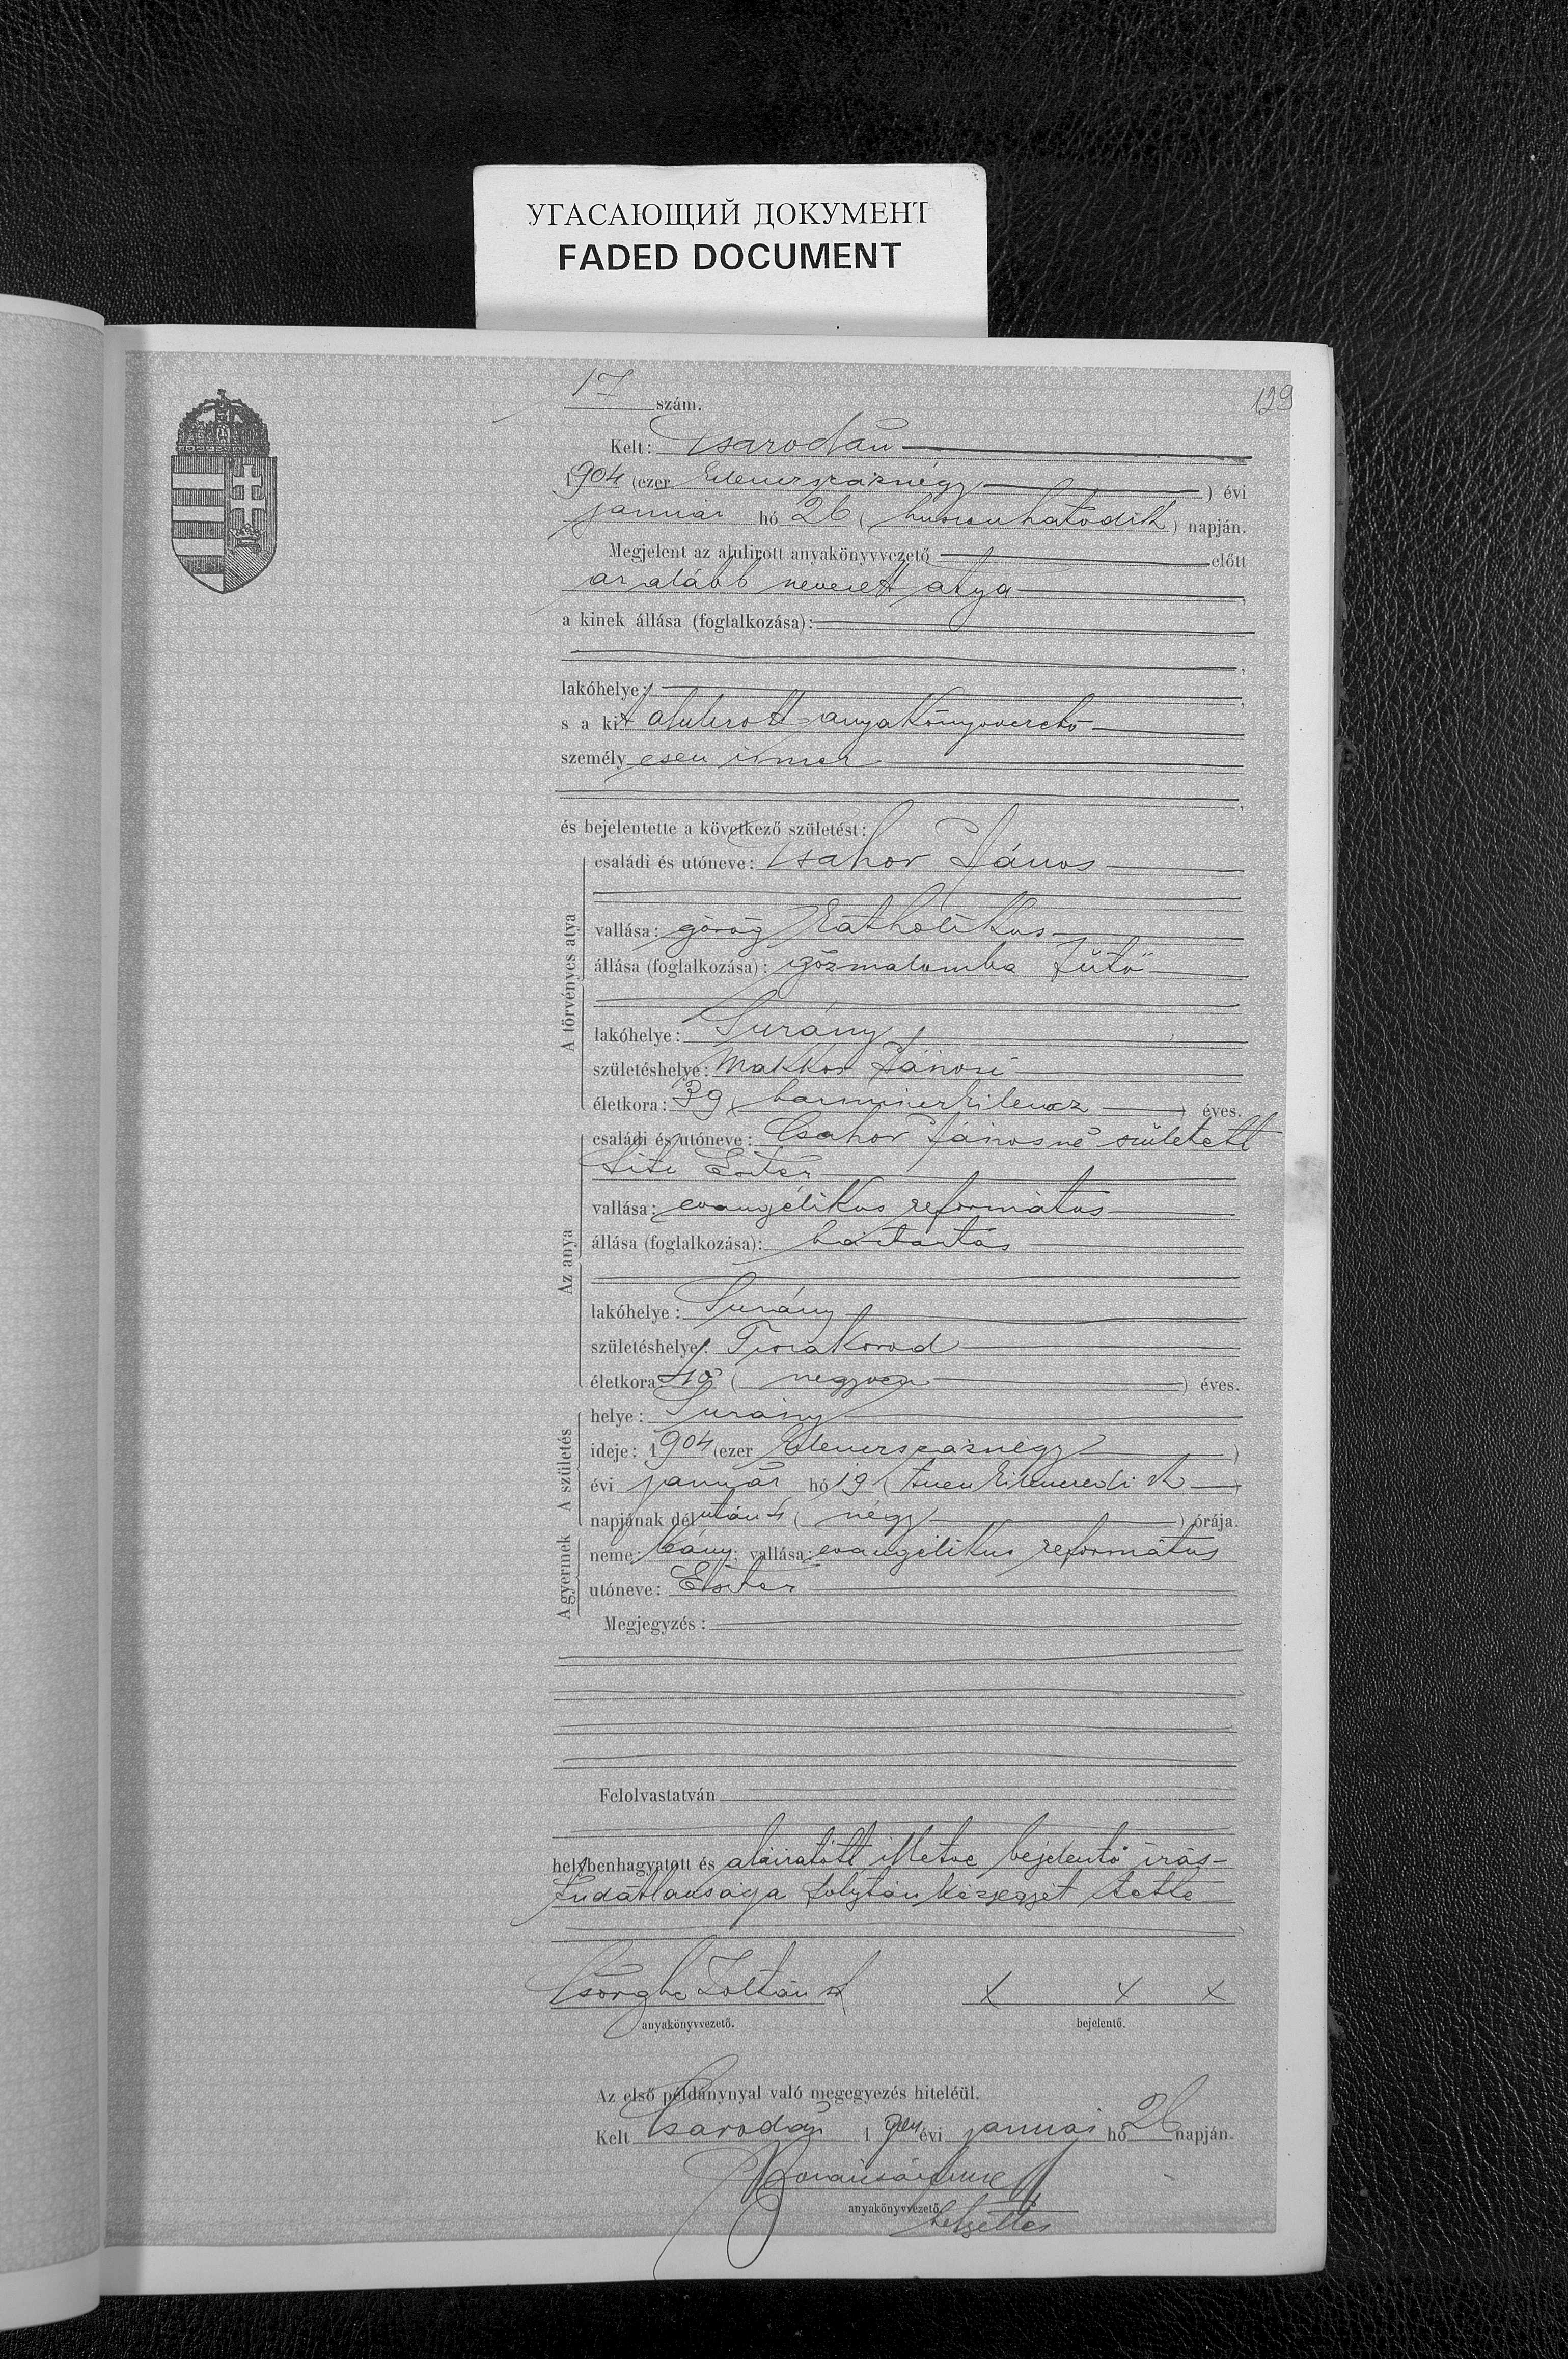 УГАСАЮЩИЙ ДОКУМЕНТ
FADED DOCUMENT
129
17 szám.
Kelt: Csarodán
1904 (ezer kilenczszáznégy) évi
január hó 26 (huszonhatodik) napján.
Megjelent az alulirott anyakönyvvezető előtt
az alább nevezett atya,
a kinek állása (foglalkozása):
lakóhelye:
s a kit alulirott anyakönyvvezető
személyesen ismer
és bejelentette a következő születést:
A törvényes atya
családi és utóneve: Csahor János
vallása: görög katholikus
állása (foglalkozása): gőzmalomba fűtő
lakóhelye: Surány
születéshelye: Makkos Jánosi
életkora: 39 (harminczkilencz) éves.
Az anya
családi és utóneve: Csahor Jánosné született
Eszter
vallása: evangélikus református
állása (foglalkozása): háztartás
lakóhelye: Surány
születéshelye: Tiszakorod
életkora 40 (negyven) éves.
A születés
helye: Surány
ideje: 1904 (ezer kilenczszáznégy)
évi január hó 19 (tizenkilenczedik)
napjának délután 4 (négy) órája.
A gyermek
neme: leány; vallása: evangélikus református
utóneve: Eszter
Megjegyzés:
Felolvastatván
helybenhagyatott és aláiratott illetve bejelentő irás-
tudatlansága folytán kézjegyét tette
Csörghe Zoltán x x x
anyakönyvvezető. bejelentő.
Az első példánynyal való megegyezés hiteléül.
Kelt Csarodán 1904 évi január hó 26 napján.
anyakönyvvezető
helyettes